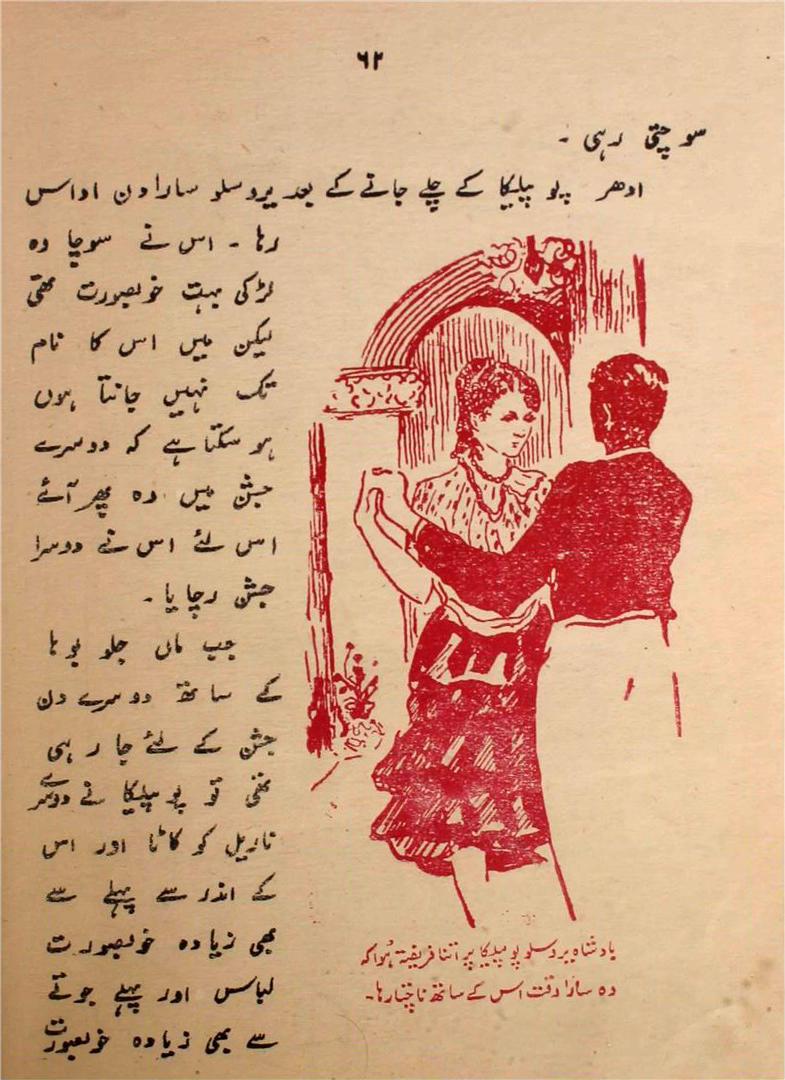 ۶۲
سوچتی رہی ۔
ادھر پو پلیکا کے چلے جانے کے بعد یروسلو سارا دن اداس
رہا ۔ اس نے سوچا وہ
لڑکی بہت خوبصورت تھی
لیکن میں اس کا نام
تک نہیں جانتا ہوں
ہو سکتا ہے کہ دوسرے
جشن میں وہ پھر آئے
اس لئے اس نے دوسرا
جشن رچایا ۔
جب ماں چلو بوہا
کے ساتھ دوسرے دن
جشن کے لئے جا رہی
تھی تو پو پلیکا نے دوسرے
ناریل کو کاٹا اور اس
کے اندر سے پہلے سے
بھی زیادہ خوبصورت
لباس اور پہلے جوتے
سے بھی زیادہ خوبصورت
بادشاہ یروسلو پو پلیکا پر اتنا فریفتہ ہُوا کہ
وہ سارا وقت اس کے ساتھ ناچتا رہا ۔